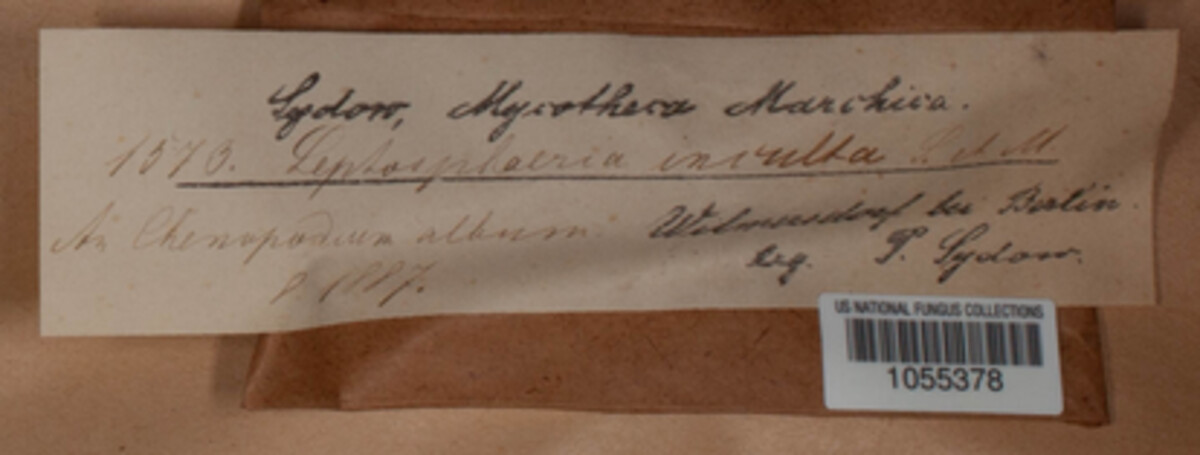 Sydow, Mycotheca Marchica.
1573. Leptosphaeria inculta S. et M.
An Chenopodium album. Wilmersdorf bei Berlin.
8. 1887. leg. P. Sydow.
US NATIONAL FUNGUS COLLECTIONS
1055378